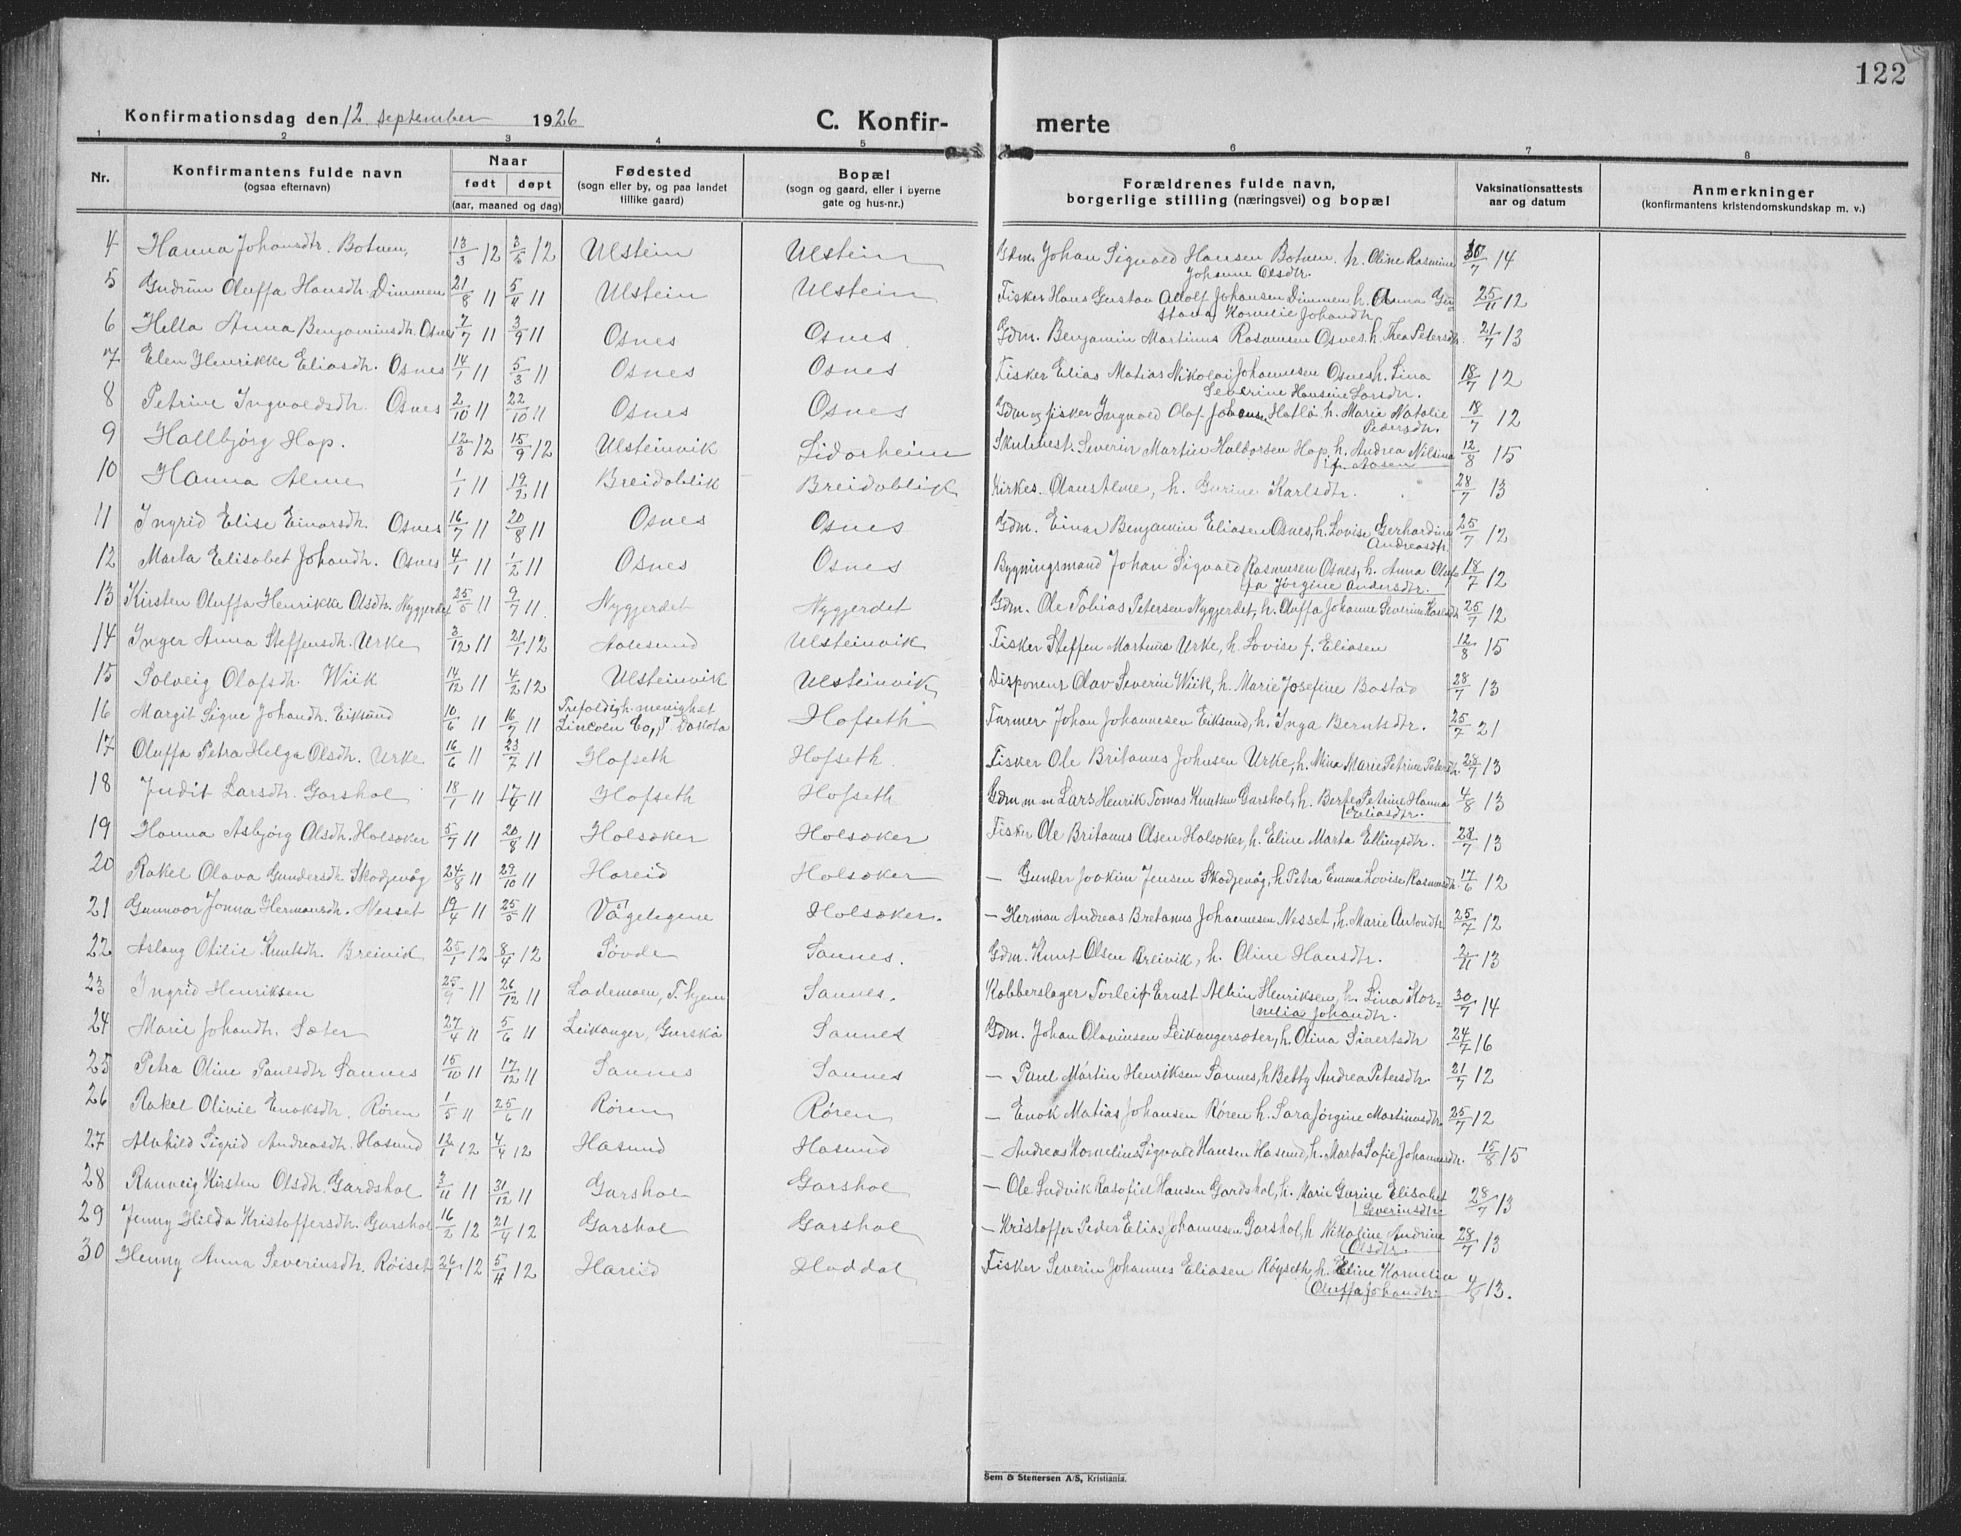 122
Konfirmationsdag den 12 september 1926 C. Konfir- merte
1 2 3 4 5 6 7 8
Nr. Konfirmantens fulde navn (ogsaa efternavn) Naar født døpt (aar, maaned og dag) Fødested (sogn eller by, og paa landet tillike gaard) Bopæl (sogn og gaard, eller i byerne gate og hus-nr.) Forældrenes fulde navn, borgerlige stilling (næringsvei) og bopæl Vaksinationsattests aar og datum Anmerkninger (konfirmantens kristendomskundskap m. v.)
4 Hanna Johansdtr. Botnen, 13/3 12 2/6 12 Ulstein Ulstein Gdm. Johan Sigvald Hansen Botnen h. Oline Rasmine 30/7 14
Johanne Olsdtr.
5 Gudrun Oluffa Hansdtr. Dimmen 21/8 11 5/11 11 Ulstein Ulstein Fisker Hans Gustav Adolf Johansen Dimmen h. Anna Gu- 25/11 12
stava Kornelie Johandtr.
6 Helta Anna Benjaminsdtr. Osnes 7/7 11 3/9 11 Osnes Osnes Gdm. Benjamin Martinus Rasmusen Osnes h. Thea Petersdtr. 21/7 13
7 Elen Henrikke Eliasdtr. Osnes 14/1 11 5/3 11 Osnes Osnes Fisker Elias Matias Nikolai Johannesen Osnes h. Lina 18/7 12
Severine Hansine Larsdtr.
8 Petrine Ingvaldsdtr. Osnes 2/10 11 22/10 11 Osnes Osnes Gdm og fisker Ingvald Olaf Johansen Hatlø h. Marie Natalie 18/7 12
Pedersdtr.
9 Hallbjørg Hop. 12/3 12 15/9 12 Ulsteinvik Lidarheim Severin Martin Haldorsen Hop, h. Andrea Nilsina 12/8 15
f. Aasen
10 Hanna Alme 1/1 11 19/2 11 Breidablik Breidablik Kirkes. Olaus Alme, h. Gurine Karlsdtr. 28/7 13
11 Ingrid Elise Einarsdtr. Osnes 16/7 11 20/8 11 Osnes Osnes Gdm. Einar Benjamin Eliasen Osnes, h. Lovise Gerhardine 25/7 12
Andreasdtr.
12 Marta Elisabet Johandtr. Osnes 4/1 11 1/2 11 Osnes Osnes Bygningsmand Johan Sigvald Rasmusen Osnes, h. Anna Oluf- 18/7 12
fa Jørgine Andersdtr.
13 Kirsten Oluffa Henrikke Olsdtr. Nygjerdet 25/5 11 9/7 11 Nygjerdet Nygjerdet Gdm. Ole Tobias Petersen Nygjerdet, h. Oluffa Johanne Severine Karlsdtr 25/7 12
14 Inger Anna Steffensdtr. Urke 3/12 11 21/1 12 Aalesund Ulsteinvik Fisker Steffen Martinus Urke, h. Lovise f. Eliasen 12/8 15
15 Solveig Olafsdtr. Wiik 14/12 11 4/2 12 Ulsteinvik Ulsteinvik Disponent Olav Severin Wiik, h. Marie Josefine Bostad 28/7 13
16 Margit Signe Johandtr. Eiksund 10/6 11 16/7 11 Trefoldigh. menighet Lincoln Co, S. Dakota Hofseth Farmer Johan Johannesen Eiksund, h. Inga Berntsdtr. 25/7 21
17 Oluffa Petra Helga Olsdtr. Urke 16/6 11 23/7 11 Hofseth Hofseth Fisker Ole Britanus Johnsen Urke, h. Mina Marie Petrine Petersdtr. 28/7 13
18 Judit Larsdtr. Garshol 18/1 11 17/4 11 Hofseth Hofseth Gdm Lars Henrik Tomas Knutsen Garshol, h. Berte Petrine Hanna 4/8 13
Eliasdtr.
19 Hanna Asbjørg Olsdtr. Holsøker 5/7 11 20/8 11 Holsøker Holsøker Fisker Ole Britanus Olsen Holsøker, h. Eline Marta Ellingsdtr. 28/7 13
20 Rakel Olava Gundersdtr. Skodjevåg 24/8 11 29/10 11 Hareid Holsøker — Gunder Joakim Jensen Skodjevåg, h. Petra Emma Lovise Rasmusdtr. 17/6 12
21 Gunnvor Jonna Hermansdtr. Nesset 19/4 11 25/5 11 Vågelegene Holsøker. — Herman Andreas Bretanus Johannesen Nesset, h. Marie Antondtr. 25/7 12
22 Aslaug Otilie Knutsdtr. Breivik 25/1 12 8/4 12 Søvde Sannes. Gdm. Knut Olsen Breivik, h. Oline Hansdtr. 2/11 13
23 Ingrid Henriksen 25/9 11 26/12 11 Lademoen, T.hjem Sannes. Kobberslager Torleif Ernst Albin Henriksen, h. Lina Kor- 30/7 14
nelia Johandtr.
24 Marie Johandtr. Sæter 27/4 11 5/6 11 Leikanger, Gurskø Sannes Gdm. Johan Olavinsen Leikangersæter, h. Olina Sivertsdtr 24/7 16
25 Petra Oline Paulsdtr Sannes 15/10 11 17/12 11 Sannes Sannes — Paul Martin Henriksen Sannes, h. Betty Andrea Petersdtr. 21/7 12
26 Rakel Olivie Enoksdtr. Røren 1/5 11 25/6 11 Røren Røren — Enok Matias Johansen Røren h. Sara Jørgine Martinusdtr. 25/7 12
27 Alvhild Sigrid Andreasdtr. Hasund 12/1 12 4/4 12 Hasund Hasund — Andreas Kornelius Sigvald Hansen Hasund, h. Marta Sofie Johannesdtr. 15/8 15
28 Ranveig Kirsten Olsdtr. Gardshol 3/11 11 31/12 11 Garshol Garshol — Ole Ludvik Rasofiel Hansen Gardshol, h. Marie Gurine Elisabet 28/7 13
Severinsdtr.
29 Jenny Hilda Kristoffersdtr. Garshol 16/2 12 21/4 12 Garshol Garshol — Kristoffer Peder Elias Johannesen Garshol, h. Nikoline Andrine 28/7 13
Olsdtr.
30 Henny Anna Severinsdtr. Røiset 26/1 12 5/4 12 Hareid Haddal Fisker Severin Johannes Eliasen Røyseth, h. Eline Kornelia 4/8 13.
Oluffa Johandtr.
Sem & Stenersen A/S, Kristiania.